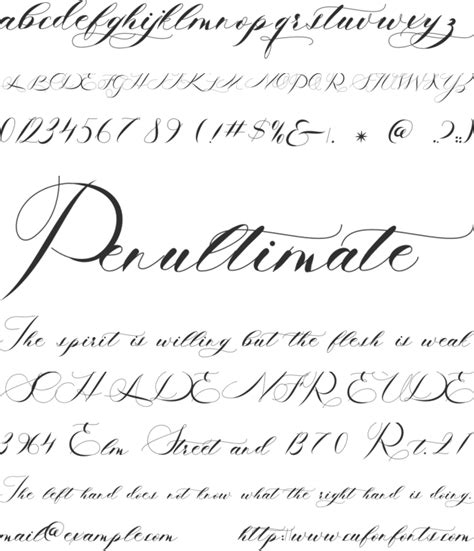 abcdefghijklmnopqrstuvwxyz
ABCDEFGHIJKLMNOPQRSTUVWXYZ
0123456789 (!#$%&) * @ .,?:;
Penultimate
The spirit is willing but the flesh is weak
SCHADENFREUDE
3964 Elm Street and 1370 Rt. 21
The left hand does not know what the right hand is doing.
email@example.com http://www.cufonfonts.com